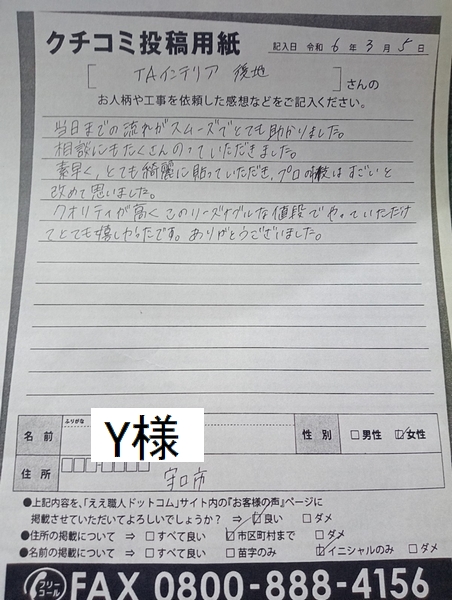 クチコミ投稿用紙
記入日 令和 6 年 3 月 5 日
TAインテリア 後地 さんの
お人柄や工事を依頼した感想などをご記入ください。
当日までの流れがスムーズでとても助かりました。
相談にもたくさんのっていただきました。
素早く、とても綺麗に貼っていただき、プロの技はすごいと
改めて思いました。
クオリティが高くこのリーズナブルな値段でやっていただけ
てとても嬉しかったです。ありがとうございました。
ふりがな
名前 Y様 性別 □男性 ☑女性
住所 守口市
●上記内容を、「ええ職人ドットコム」サイト内の『お客様の声』ページに
掲載させていただいてよろしいでしょうか? ⇒ ☑良い □ダメ
●住所の掲載について ⇒ □すべて良い ☑市区町村まで □ダメ
●名前の掲載について ⇒ □すべて良い □苗字のみ ☑イニシャルのみ □ダメ
フリーコール FAX 0800-888-4156